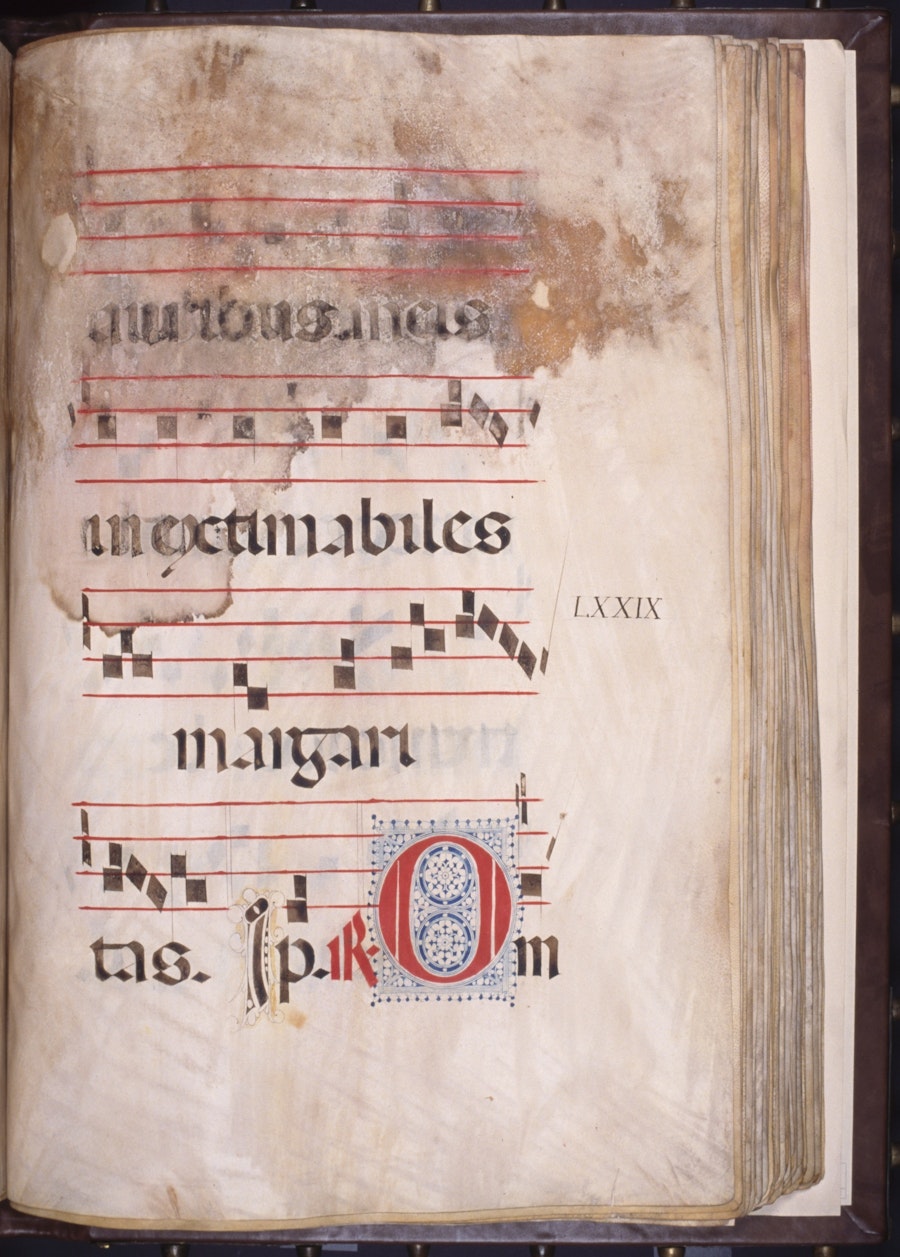 auribus meis
inextimabiles
LXXIX
margari
tas. Ip. R. Om